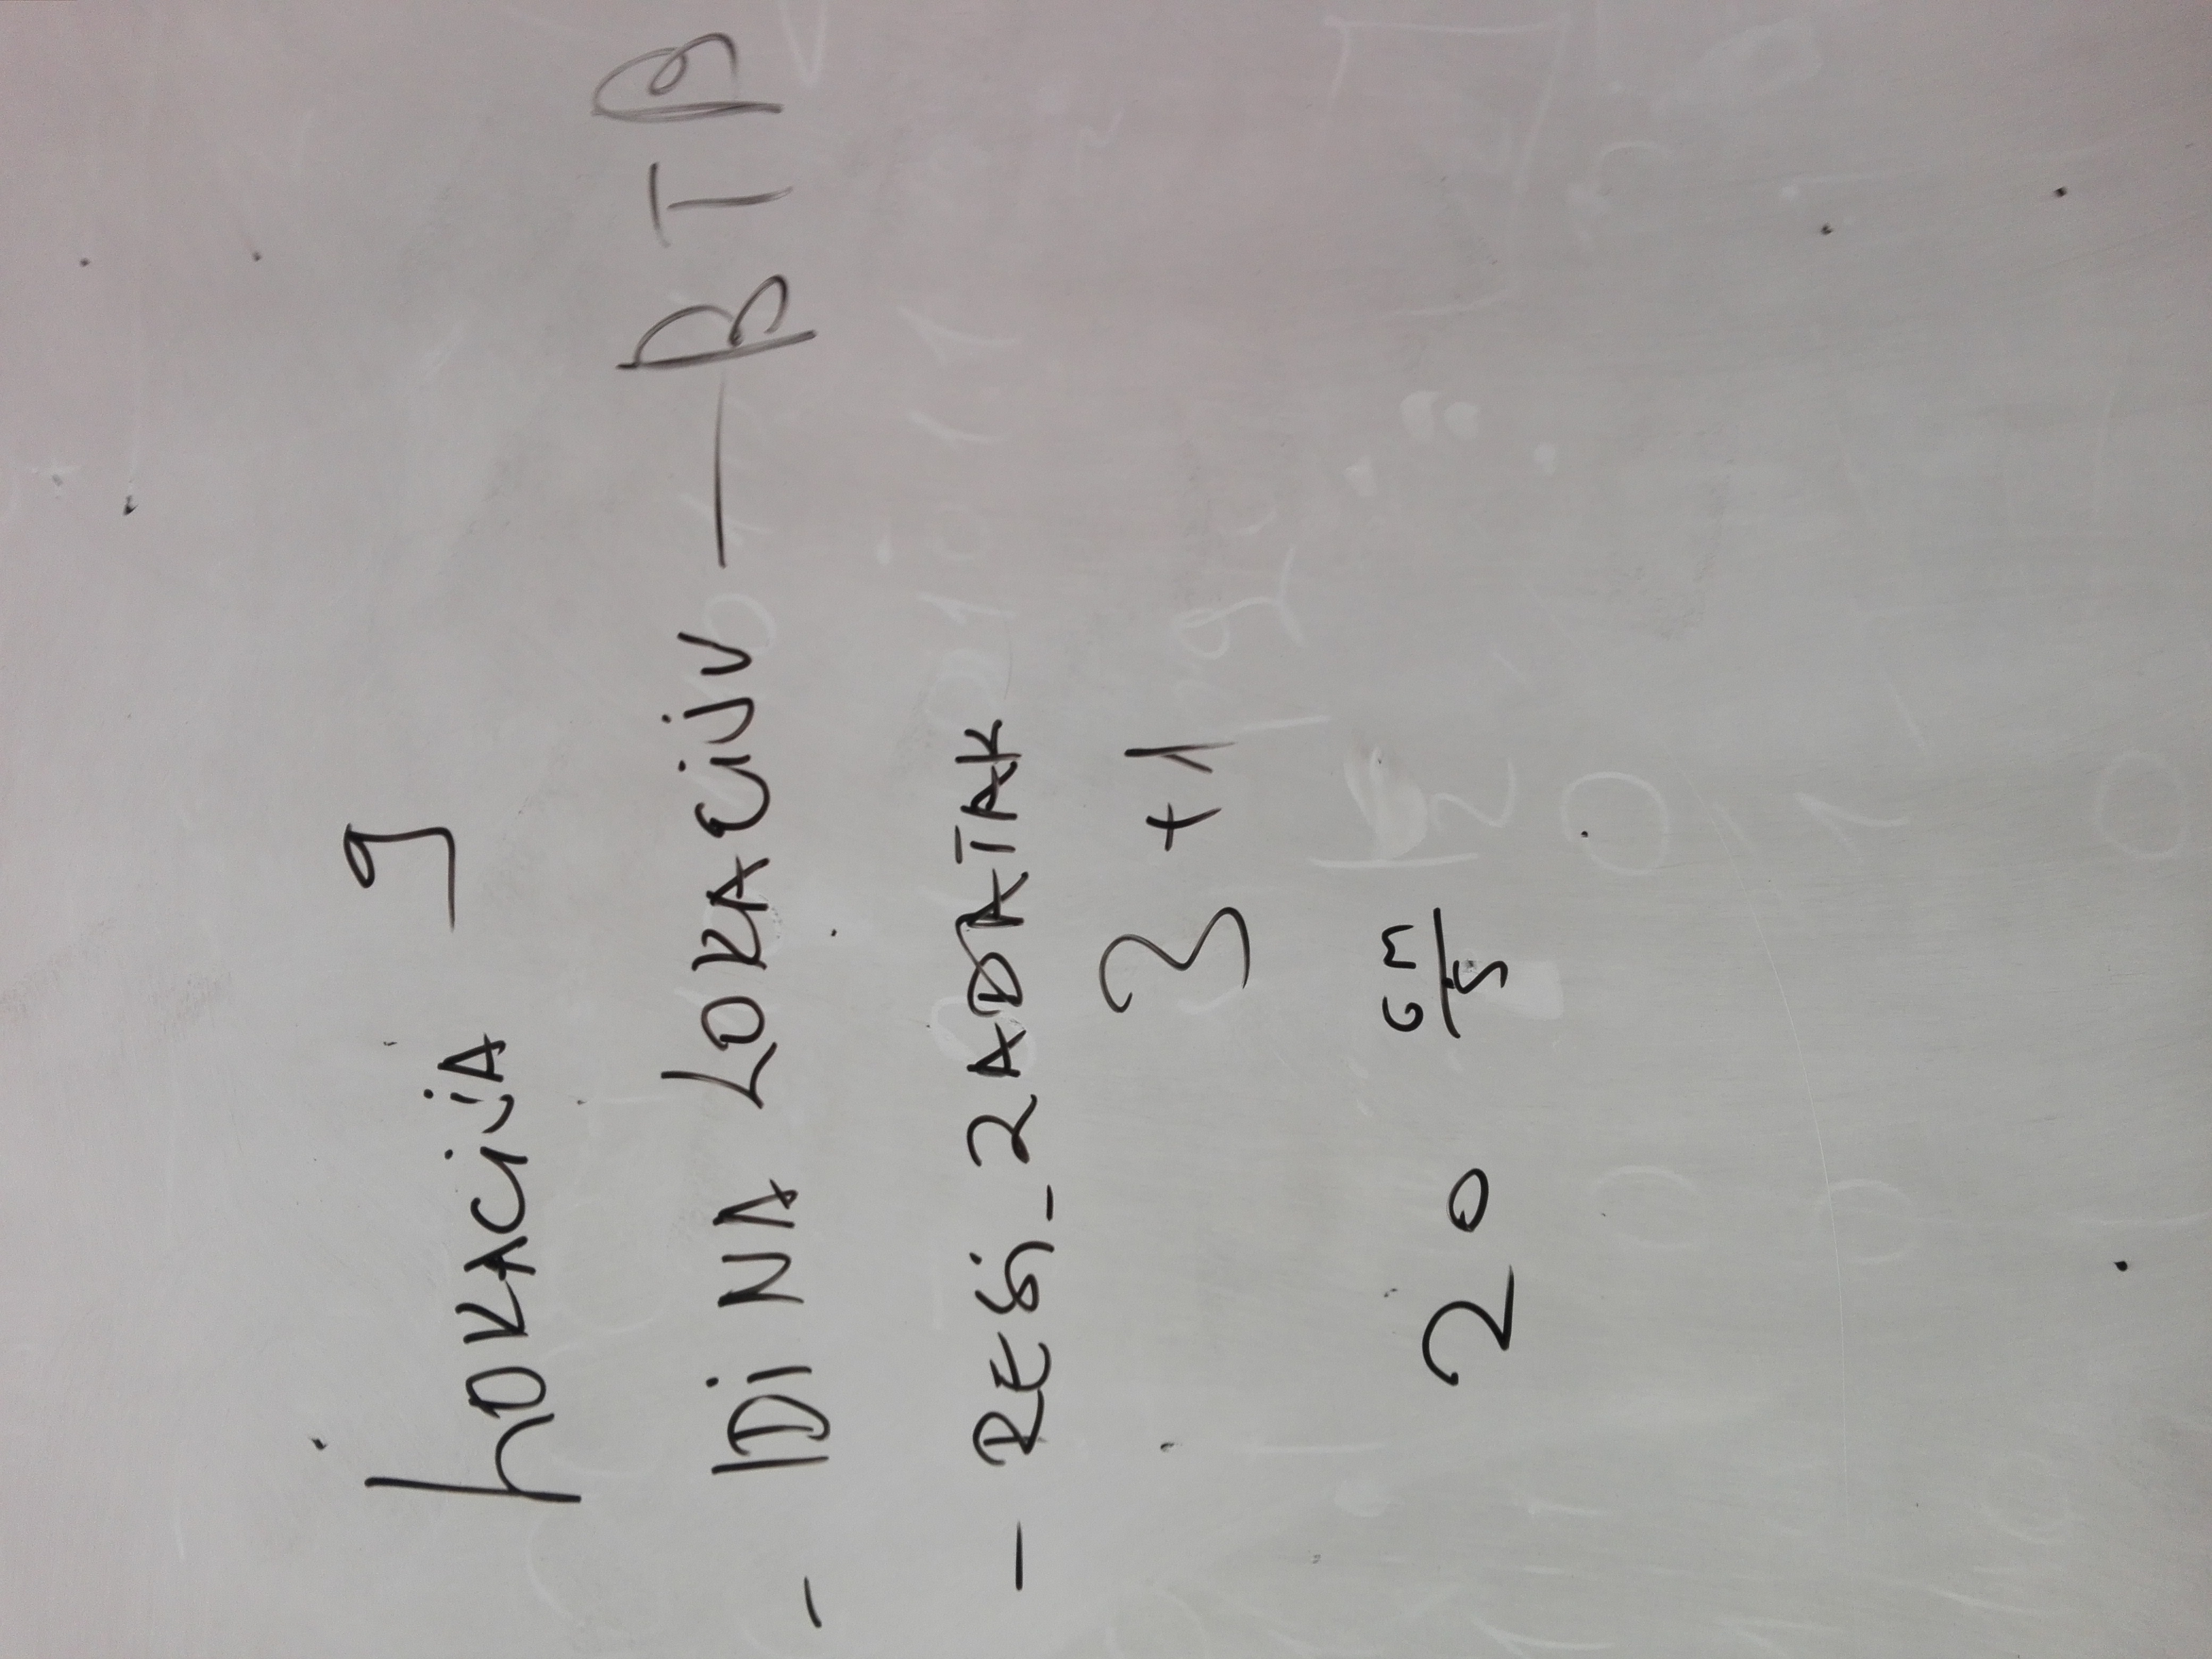 LOKACIJA 9
- IDI NA LOKACIJU — BTB
- REŠI_ZADATAK
3 +1
20 cm/s